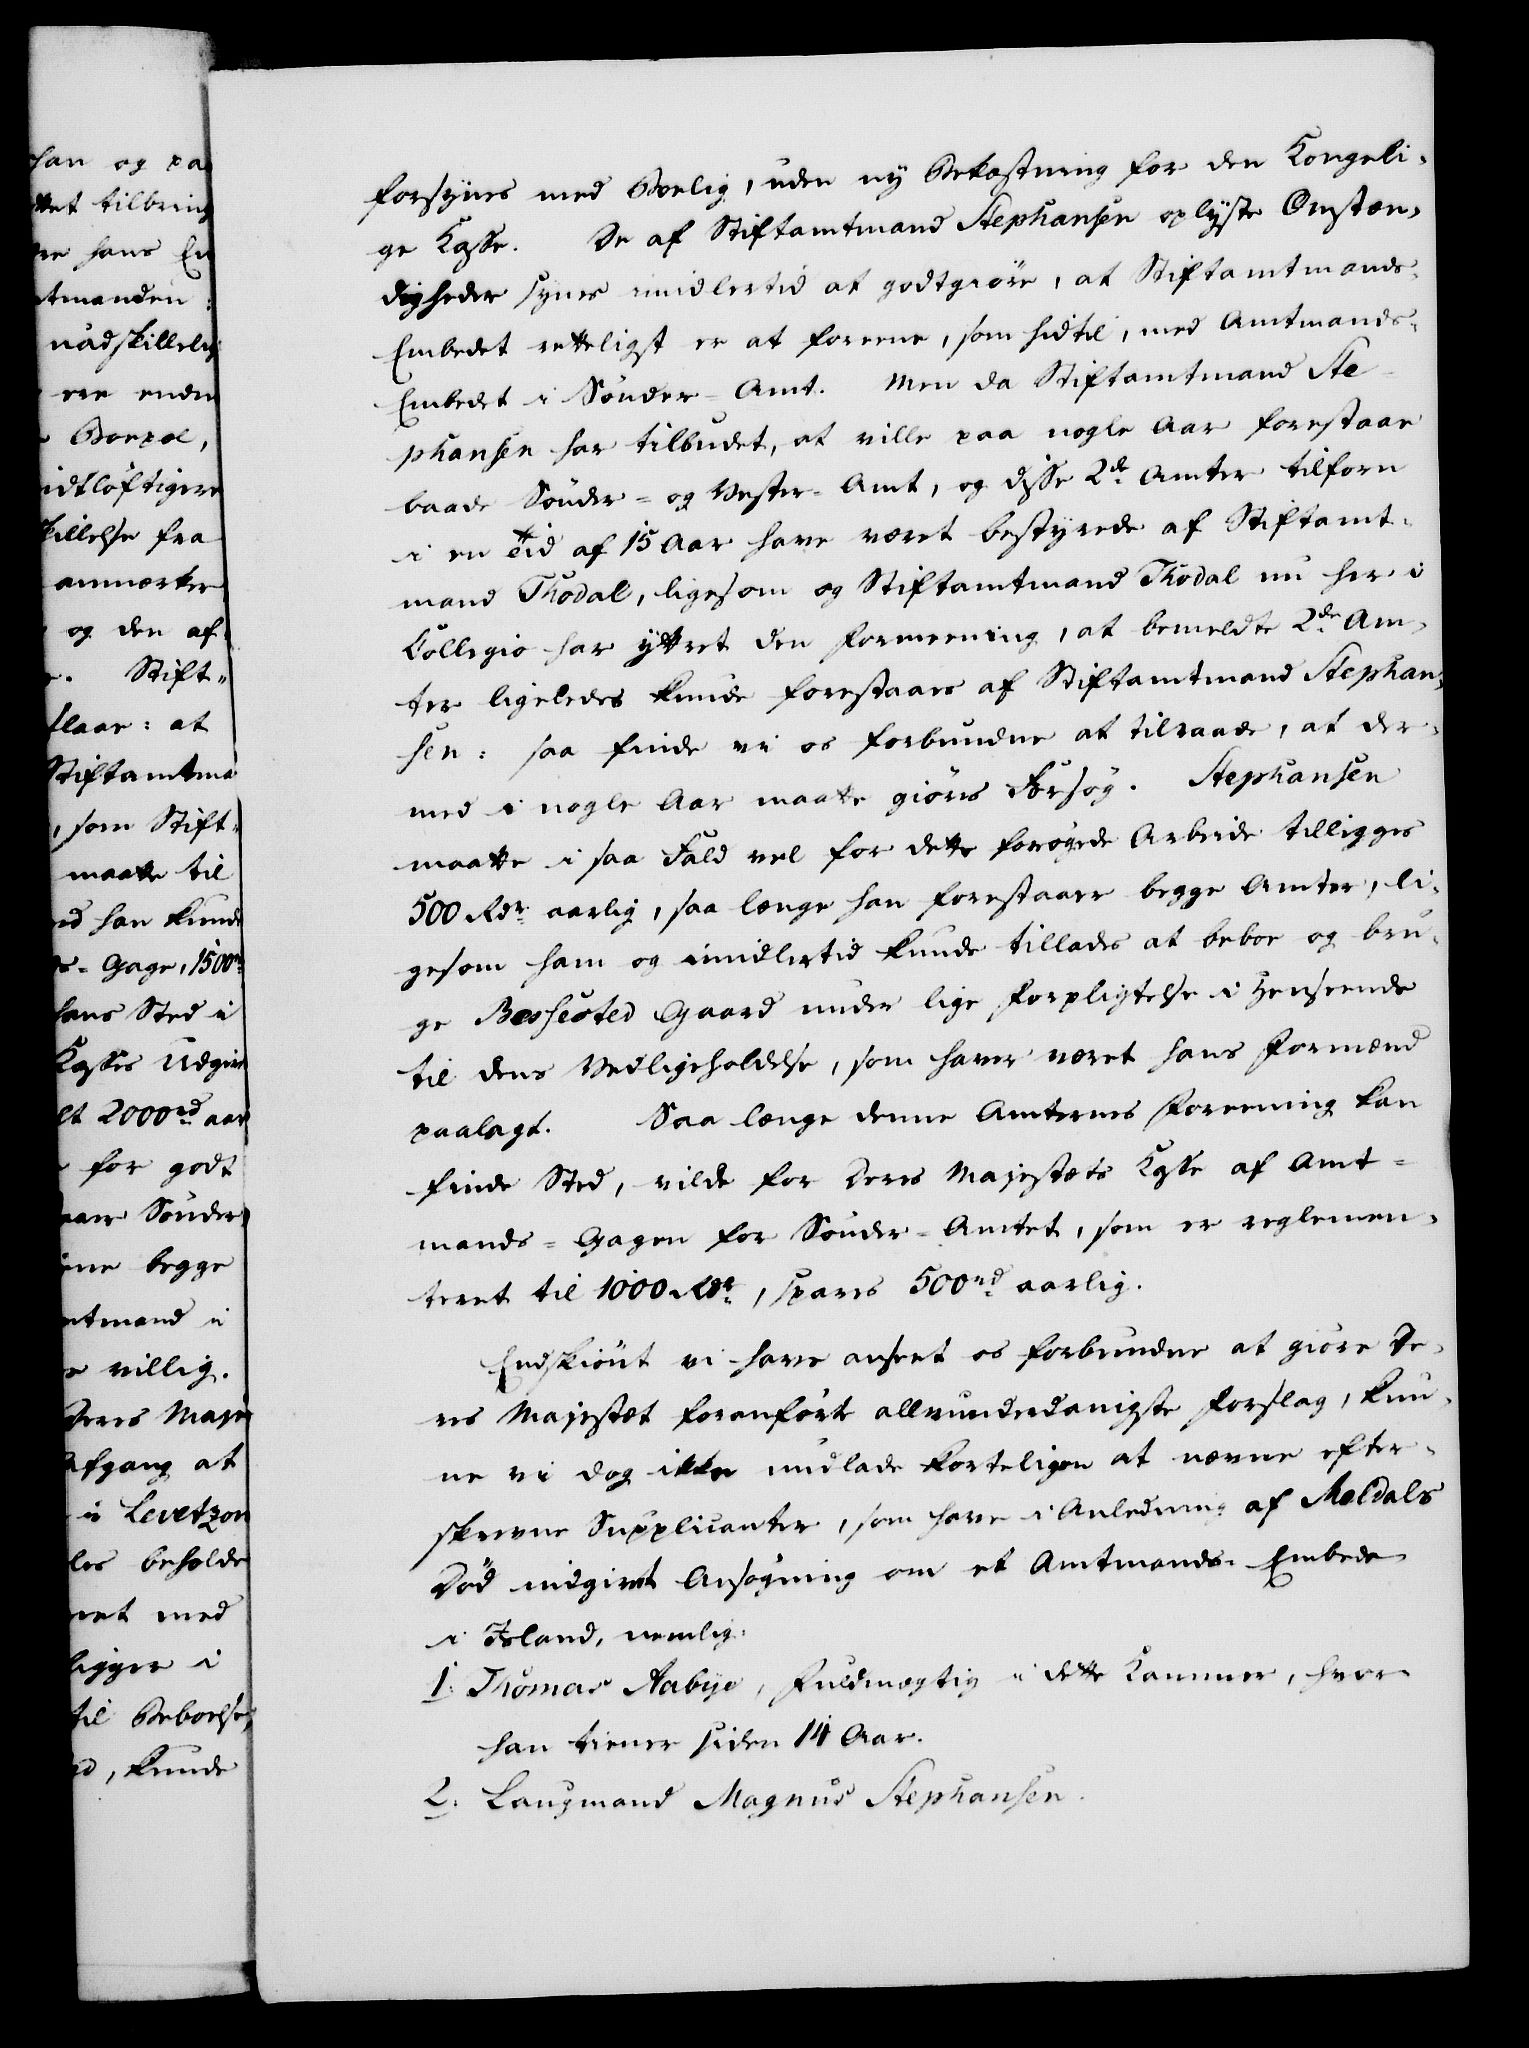 han og paa
ttet tilbring
re hans En
tmanden:
uadskillelig
ere endnu
Boepæl,
idtløftigere
killelse fra
anmærker
og den af-
. Stift-
laae: at
Stiftamtma
, som Stift-
maatte til
id han kunde
s-Gage, 1500 rd
hans Sted i
Kasses Udgivt
lt 2000 rd aar
for godt
aaer Sønder
ine begge
mtmand i
e villig.
Deres Maje
Afgang at
i Levetzon
les beholde
ret med
ligger i
til Beboelse,
d, kunde
forsynes med Boelig, uden ny Bekostning for den Kongeli-
ge Kasse. De af Stiftamtmand Stephansen oplyste Omstæn-
digheder synes imidlertid at godtgiøre, at Stiftamtmands-
Embedet retteligst er at foreene, som hidtil, med Amtmands-
Embedet i Sønder-Amt. Men da Stiftamtmand Ste-
phansen har tilbudet, at ville paa nogle Aar forestaae
baade Sønder- og Vester-Amt, og disse 2de Amter tilforn
i en Tid af 15 Aar have været bestyrede af Stiftamt-
mand Thodal, ligesom og Stiftamtmand Thodal nu her i
Collegio har yttret den Formeening, at bemeldte 2de Am-
ter ligeledes kunde forestaaes af Stiftamtmand Stephan-
sen: saa finde vi os forbundne at tilraade, at der-
med i nogle Aar maatte giøres Forsøg. Stephansen
maatte i saa Fald vel for dette forøgede Arbeide tillegges
500 Rdr aarlig, saa længe han forestaaer begge Amter, li-
gesom ham og imidlertid kunde tillades at beboe og bru-
ge Bessested Gaard under lige Forpligtelse i Henseende
til dens Vedligeholdelse, som haver været hans Formænd
paalagt. Saa længe denne Amternes Foreening kan
finde Sted, vilde for Deres Majestæts Kasse af Amt-
mands-Gagen for Sønder-Amtet, som er reglemen-
teret til 1000 Rdr, spares 500 rd aarlig.
Endskiønt vi have anseet os forbundne at giøre De-
res Majestæt foranførte allerunderdanigste Forslag, kun-
ne vi dog ikke undlade korteligen at nævne efter-
skrevne Supplicanter, som have i Anledning af Meldals
Død indgivet Ansøgning om et Amtmands-Embede
i Island, nemlig:
1. Thomas Aabye, Fuldmægtig i dette Kammer, hvor
han tiener siden 14 Aar.
2. Laugmand Magnus Stephansen.